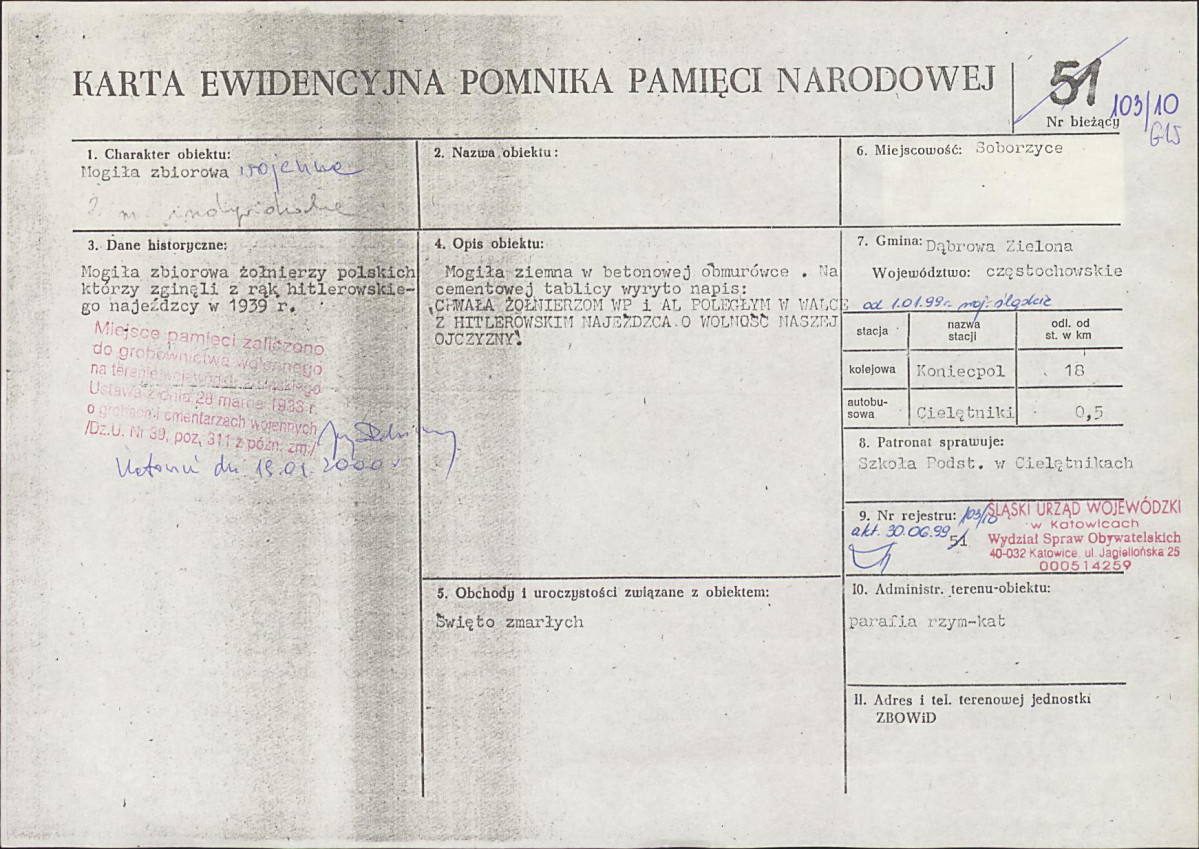 KARTA EWIDENCYJNA POMNIKA PAMIĘCI NARODOWEJ
51
Nr bieżący
103/10
GW
1. Charakter obiektu:
Mogiła zbiorowa wojenna
2. Nazwa obiektu:
3. Dane historyczne:
Mogiła zbiorowa żołnierzy polskich
którzy zginęli z rąk hitlerowskie-
go najeźdzcy w 1939 r.
Miejsce pamięci zaliczono
do grobownictwa wojennego
na terenie
Ustawa z dnia 28 marca 1933 r.
o grobach i cmentarzach wojennych
/Dz.U. Nr 39, poz. 311 z późn. zm./
dn. 19.01.2000 r
4. Opis obiektu:
Mogiła ziemna w betonowej obmurówce . Na
cementowej tablicy wyryto napis:
"CHWAŁA ŻOŁNIERZOM WP i AL POLEGŁYM W WALCE
Z HITLEROWSKIM NAJEŹDZCĄ O WOLNOŚĆ NASZEJ
OJCZYZNY"
5. Obchody i uroczystości związane z obiektem:
Święto zmarłych
6. Miejscowość: Soborzyce
7. Gmina: Dąbrowa Zielona
Województwo: częstochowskie
od 1.01.99r. woj. śląskie
stacja
nazwa
stacji
odl. od
st. w km
kolejowa
Koniecpol
18
autobu-
sowa
Cielętniki
0,5
8. Patronat sprawuje:
Szkoła Podst. w Cielętnikach
9. Nr rejestru: 103/10
akt. 30.06.99
51
ŚLĄSKI URZĄD WOJEWÓDZKI
w Katowicach
Wydział Spraw Obywatelskich
40-032 Katowice, ul. Jagiellońska 25
000514259
10. Administr. terenu-obiektu:
parafia rzym-kat
11. Adres i tel. terenowej jednostki
ZBOWiD